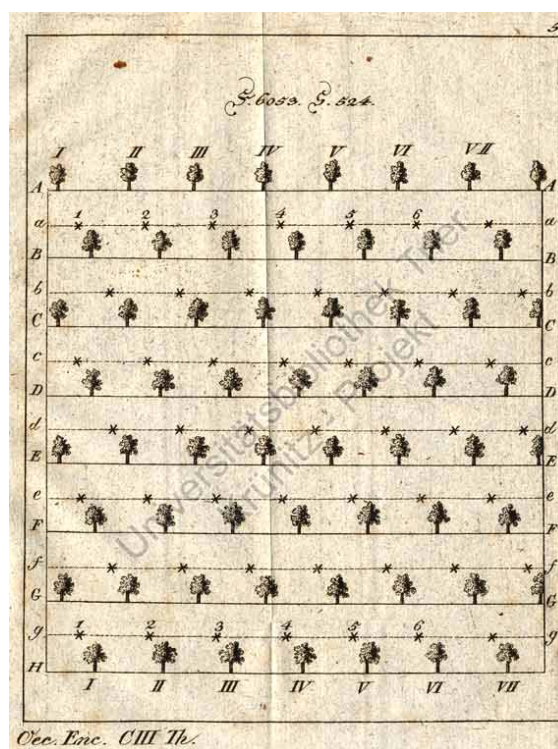 5
F. 6053. S. 524.
I II III IV V VI VII
A A
1 2 3 4 5 6
a a
B B
b b
C C
c c
D D
d d
E E
e e
F F
f f
G G
1 2 3 4 5 6
g g
H
I II III IV V VI VII
Oec. Enc. CIII Th.
Universitätsbibliothek Trier
Krünitz - Projekt